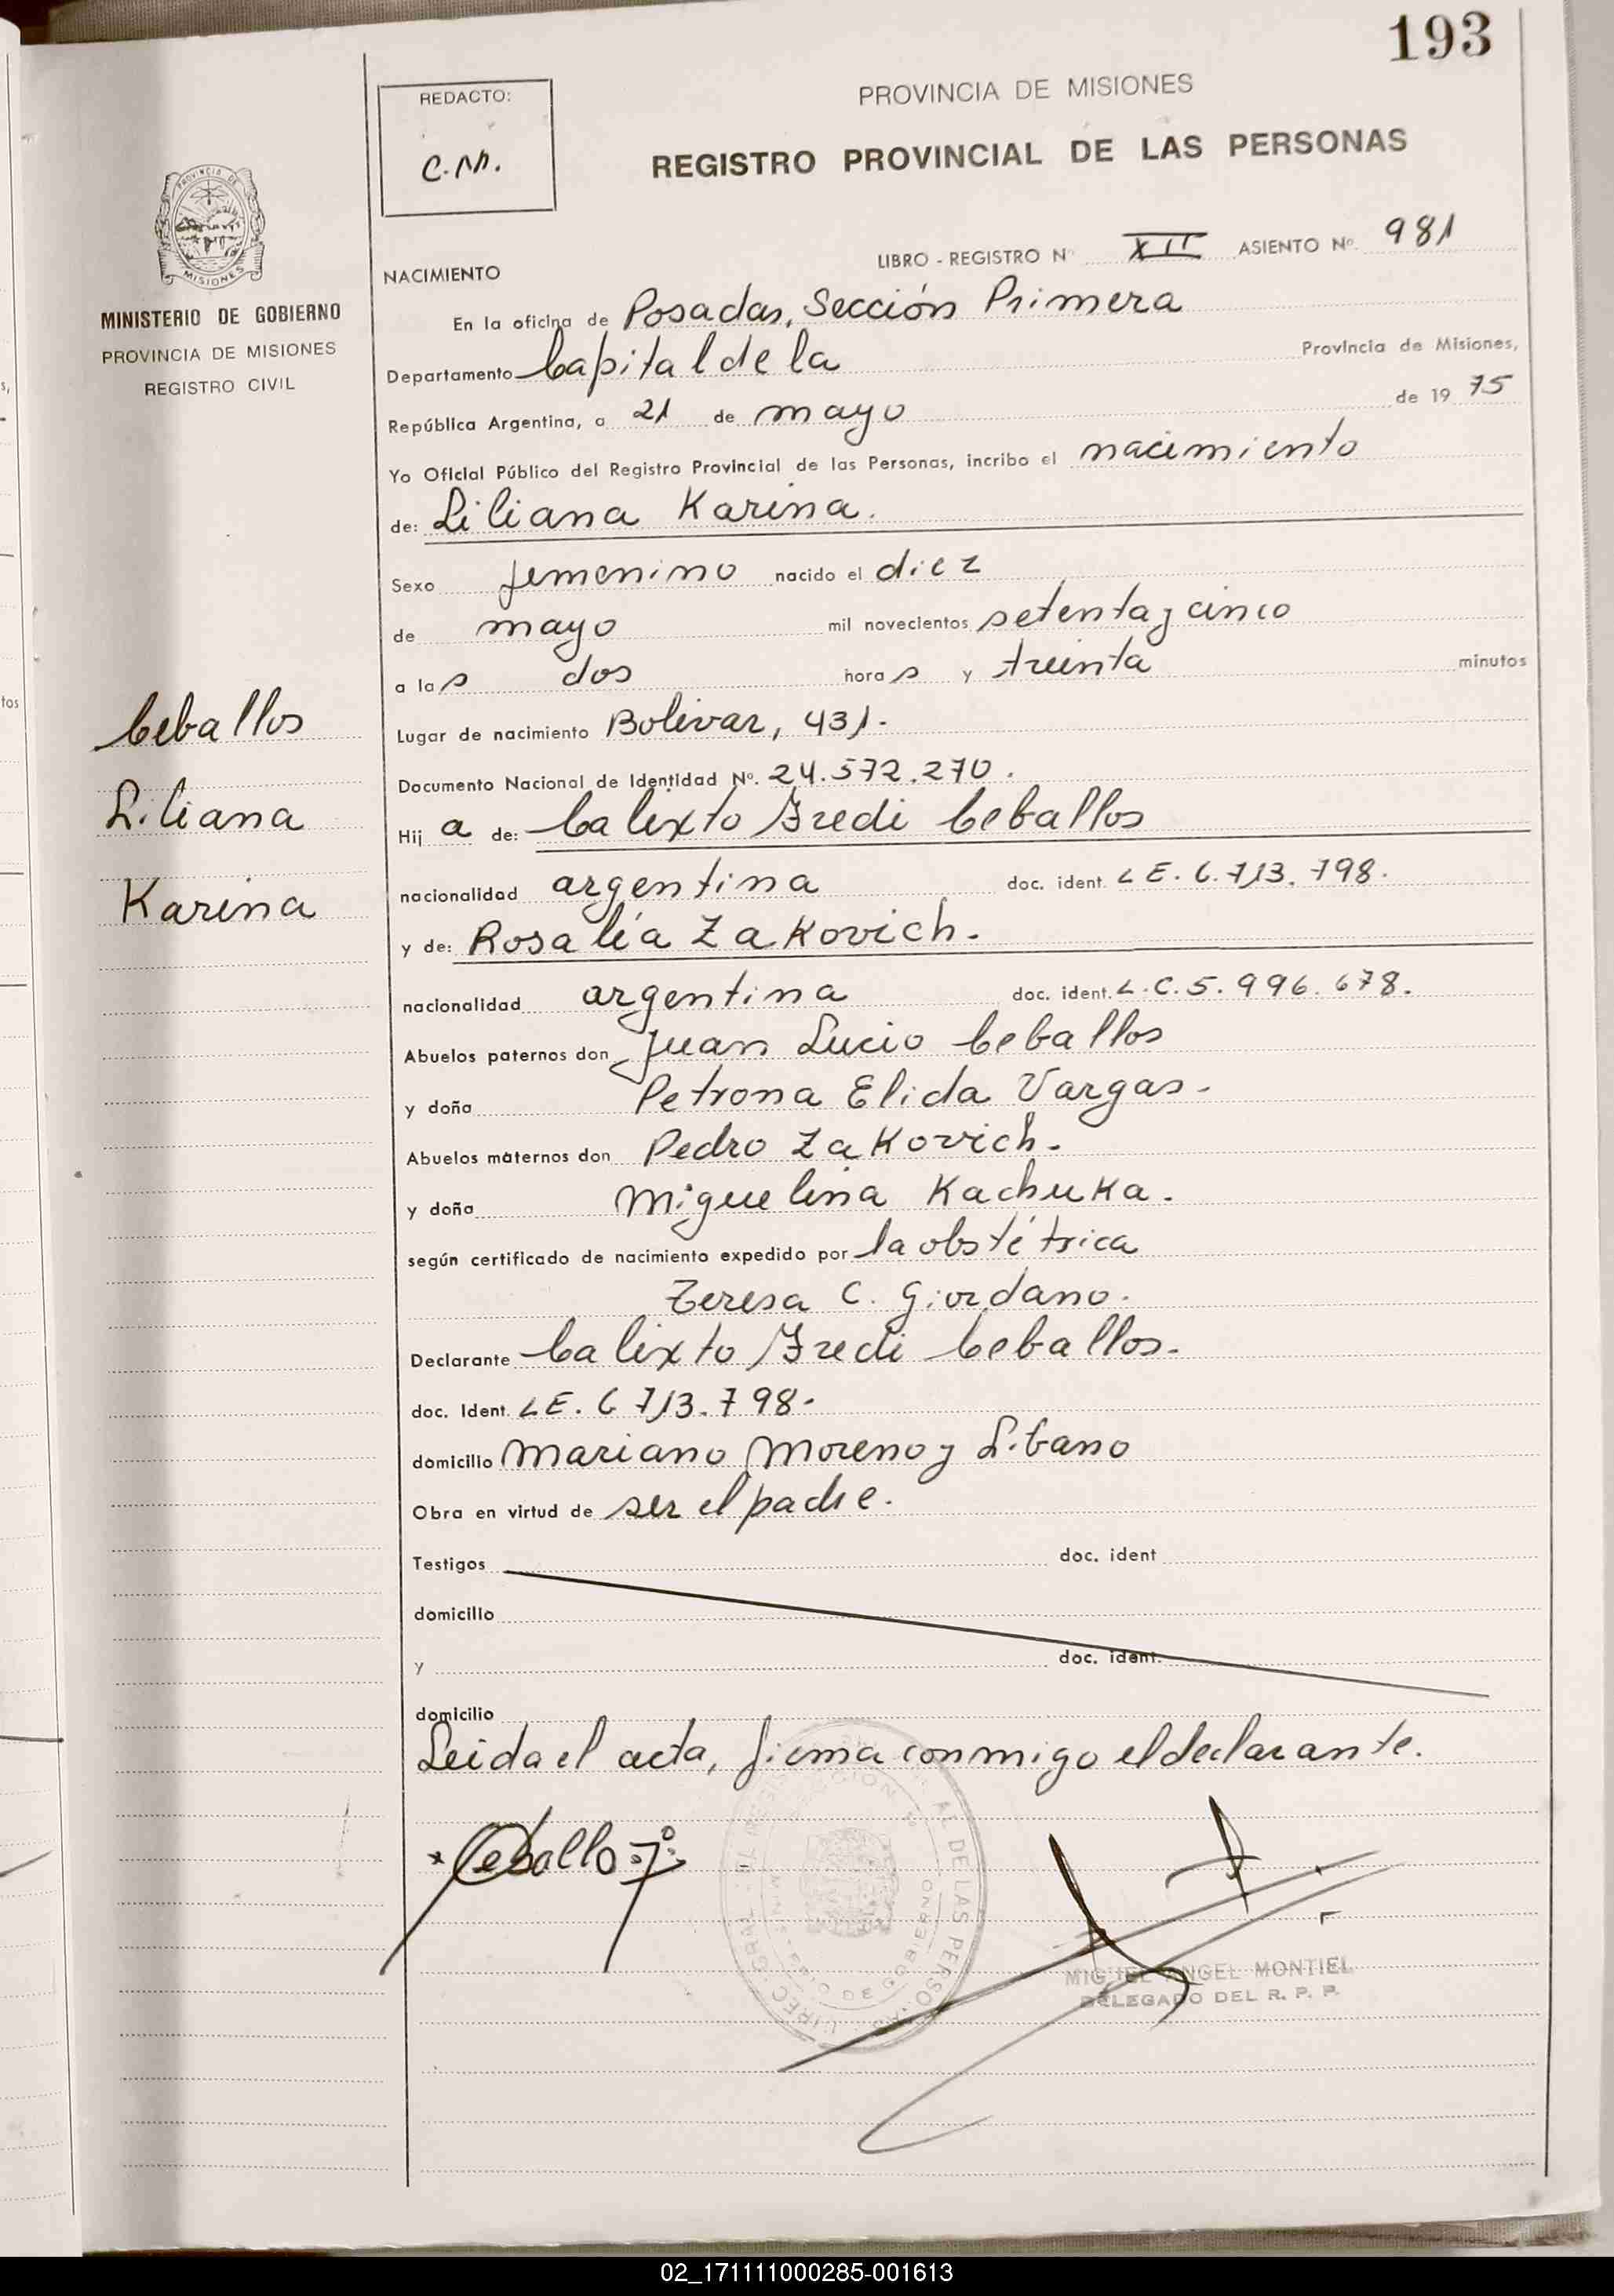 193
REDACTO:
C.M.
PROVINCIA DE MISIONES
REGISTRO PROVINCIAL DE LAS PERSONAS
PROVINCIA DE
MISIONES
MINISTERIO DE GOBIERNO
PROVINCIA DE MISIONES
REGISTRO CIVIL
LIBRO - REGISTRO Nº XII ASIENTO Nº 981
NACIMIENTO
En la oficina de Posadas, Sección Primera
Departamento Capital de la Provincia de Misiones,
República Argentina, a 21 de mayo de 19 75
Yo Oficial Público del Registro Provincial de las Personas, incribo el nacimiento
de: Liliana Karina.
Sexo femenino nacido el diez
de mayo mil novecientos setenta y cinco
a las dos horas y treinta minutos
Lugar de nacimiento Bolivar, 431.
Documento Nacional de Identidad Nº. 24.572.270.
Hij a de: Calixto Fredi Ceballos
nacionalidad argentina doc. ident. LE. 6.713.798.
y de: Rosalía Zakovich.
nacionalidad argentina doc. ident. L.C. 5.996.678.
Abuelos paternos don Juan Lucio Ceballos
y doña Petrona Elida Vargas.
Abuelos maternos don Pedro Zakovich.
y doña Miguelina Kachuka.
según certificado de nacimiento expedido por la obstétrica
Teresa C. Giordano.
Declarante Calixto Fredi Ceballos.
doc. Ident. LE. 6 713.798.
domicilio Mariano Moreno y Líbano
Obra en virtud de ser el padre.
Testigos doc. ident
domicilio
y doc. ident.
domicilio
Leida el acta, firma conmigo el declarante.
Ceballos
Liliana
Karina
MIGUEL ANGEL MONTIEL
DELEGADO DEL R. P. P.
02_171111000285-001613